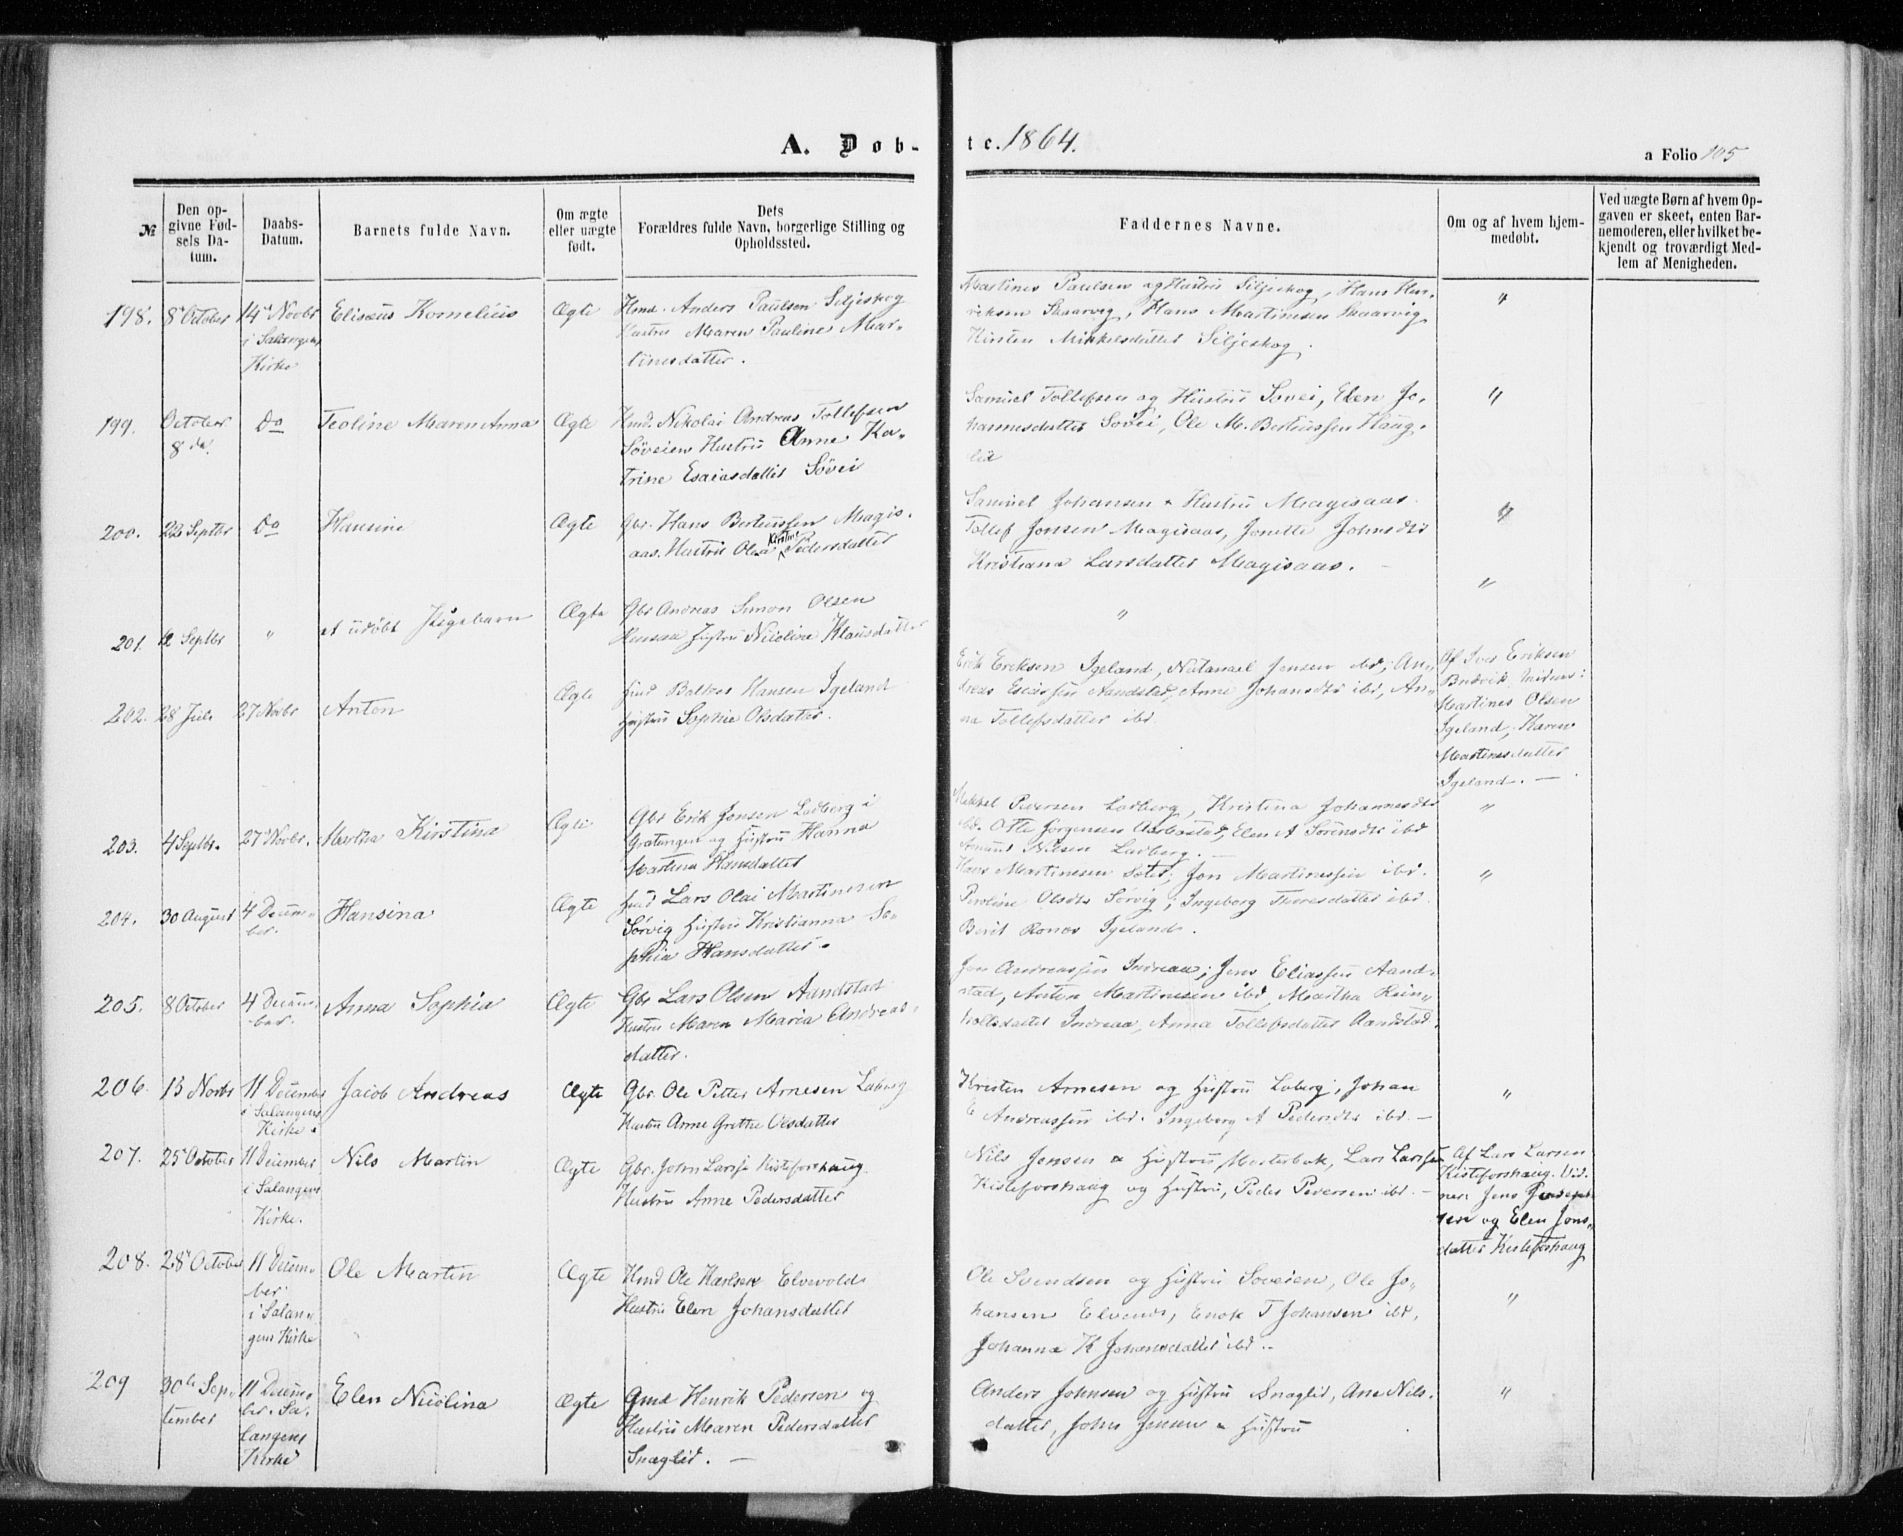 A. Døb-
te. 1864.
a Folio 105
№
Den op-
givne Fød-
sels Da-
tum.
Daabs-
Datum.
Barnets fulde Navn.
Om ægte
eller uægte
født.
Dets
Forældres fulde Navn, borgerlige Stilling og
Opholdssted.
Faddernes Navne.
Om og af hvem hjem-
medøbt.
Ved uægte Børn af hvem Op-
gaven er skeet, enten Bar-
nemoderen, eller hvilket be-
kjendt og troværdigt Med-
lem af Menigheden.
198.
8de October
14de Novbr
i Salangens
Kirke
Elisæus Kornelius
Ægte
Hmd. Anders Paulsen Seljeskog
Hustru Maren Pauline Mar-
tinesdatter.
Martines Paulsen og Hustru Siljeskog, Hans Hen-
riksen Skaarvig, Hans Martinsen Skaarvig
Kirsten Mikkelsdatter Siljeskog.
"
199.
October
8 de.
Do
Teoline Maren Anna
Ægte
Hmd. Nikolai Andreas Tollefsen
Søveien Hustru Anne Ka-
trine Esaiasdatter Søvei
Samuel Tollefsen og Hustru Sovei, Elen Jo-
hannesdatter Søvei, Ole M. Berteussen Haug-
lid
"
200.
22 Septbr
Do
Hansine
Ægte
Gbr. Hans Berteussen Magis-
aas. Hustru Olea Kirstine Pedersdatter
Samuel Johansen & Hustru Magisaas
Tollef Jonsen Magisaas, Jonette Johnsdtr
Kristiana Larsdatter Magisaas.
"
201.
12 Septbr
"
et udøbt Pigebarn
Ægte
Gbr Andreas Simon Olsen
Hustru Nicoline Klausdatter
"
"
202.
28 Juli
27 Novbr
Anton
Ægte
Hmd Baltser Hansen Igeland
Hustru Sophie Olsdatter.
Erik Eriksen Igeland, Natanael Jensen ibd, An-
dreas Esaiassen Aandstad, Anne Johansdtr ibd, An-
na Tollefsdatter ibd.
Af Iver Eriksen
Budvik. Vidner:
Martines Olsen
Igeland, Karen
Martinesdatter
Igeland. —
203.
4 Septbr.
27de Novbr.
Martha Kirstina
Ægte
Gbr Erik Jonsen Laberg i
Gratangen og Hustru Hanna
Martina Hansdatter
Mikkel Pedersen Laberg, Kristina Johannesdtr
ibd. Otte Jørgensen Aarbostad, Elen A Sørensdtr ibd
Amund Nilsen Laberg. —
"
204.
30 August
4 Decem-
ber.
Hansina
Ægte
Hmd Lars Olai Martinesen
Sørvig Hustru Kristianna So-
phia Hansdatter.
Hans Martinesen Seter, Jon Martinessen ibd.
Peroline Olsdtr Sørvig, Ingeborg Thoresdatter ibd.
Berit Igeland.
"
205.
8 October
4 Decem-
ber.
Anna Sophia
Ægte
Gbr Lars Olsen Aandstad
Hustru Maren Maria Andreas-
datter.
Jon Andreassen Indreaa, Jens Eliassen Aand-
stad, Anton Martinesen ibd, Martha Rein-
holtsdatter Indreaa, Anna Tollefsdatter Aandstad.
206.
13 Novbr
11 December
i Salangens
Kirke.
Jacob Andreas
Ægte
Gbr. Ole Petter Arnesen Laberg
Hustru Anne Grethe Olsdatter
Kristen Arnesen og Hustru Laberg, Johan
E Andreassen ibd. Ingeborg A Pedersdtr ibd. —
"
207.
25de October
11 December
i Salangens
Kirke.
Nils Martin
Ægte
Gbr. John Larsen Kisteforshaug.
Hustru Anne Pedersdatter
Nils Jensen & Hustru Mosterbak, Lars Larsen
Kisteforshaug og Hustru, Peder Pedersen ibd. —
Af Lars Larsen
Kisteforshaug. Vid-
ner: Jens
og Elen Jons-
datter Kisteforshaug
208.
28de October
11 Decem-
ber
i Salan-
gens Kirke
Ole Martin
Ægte
Hmd Ole Karlsen Elvevold
Hustru Elen Johansdatter
Ole Svendsen og Hustru Soveien, Ole Jo-
hansen Elvenes, Enok T Johansen ibd,
Johanna K Johansdatter ibd..
"
209
30te Sep-
tember
11 Decem-
ber. Sa-
langens
Kirke
Elen Nicolina
Ægte
Gmd Henrik Pedersen og
Hustru Maren Pedersdatter
Snæglid. —
Anders Johnsen og Hustru Snæglid, Ane Nils-
datter, John Jensen & Hustru
"